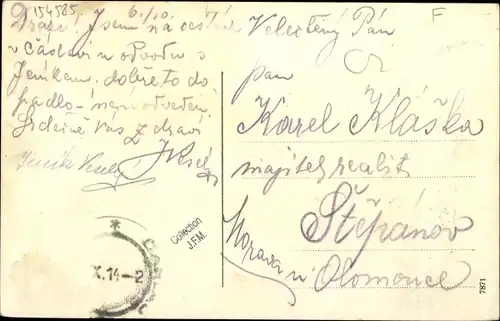 154585
6./10.
Drazí, Jsem na cestách
v Čáslavi u odvodu s
Jeníkem. dobře to do
padlo
Srdečně Vás zdraví
Jeník Veselý
Velectěný Pán
pan
Karel Kláška
majitel realit
Štěpánov
Morava u Olomouce
F
Collection
J.F.M.
X.14-2
7871